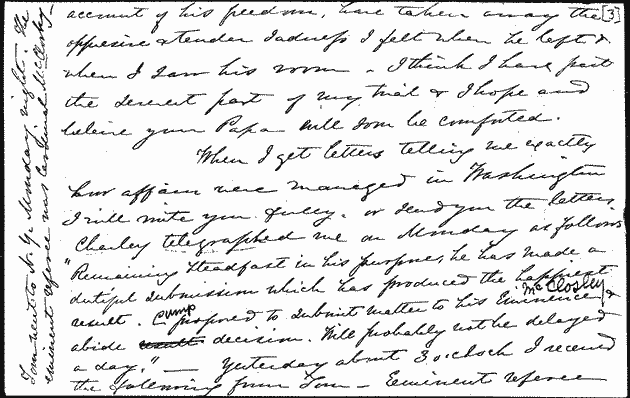 account of his freedom, have taken away the [3]
oppresive & tender sadness I felt when he left &
when I saw his room - I think I have past
the severest part of my trial & I hope and
believe your Papa will soon be comforted.
When I get letters telling me exactly
how affairs were managed in Washington
I will write you fully - or send you the letters.
Charley telegraphed me on Monday as follows
"Remaining steadfast in his purpose, he has made a
dutiful submission which has produced the happiest
result. Cump proposed to submit matter to his Eminence McClosley &
abide result decision. Will probably not be delayed
a day." - Yesterday about 3 o'clock I received
the following from Tom - Eminent referee
Tom went to N.Y. Monday night. The
eminent referee was Cardinal McClosky -